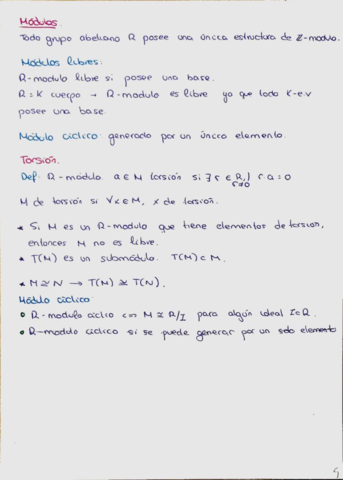 Módulos.
Todo grupo abeliano R posee una única estructura de Z-modulo.
Módulos libres:
R-modulo libre si posee una base.
R = K cuerpo → R-modulo es libre ya que todo K-e.v
posee una base.
Módulo cíclico: generado por un único elemento.
Torsión.
Def: R-módulo. a∈M torsión si ∃ r ∈ R, r≠0 | r a = 0
M de torsión si ∀x∈M, x de torsión.
* Si M es un R-modulo que tiene elementos de torsion,
entonces M no es libre.
* T(M) es un submódulo. T(M) ⊂ M.
* M ≅ N → T(M) ≅ T(N).
Módulo cíclico:
• R-modulo ciclico ⟺ M ≅ R/I para algún ideal I∈R.
• R-modulo ciclico si se puede generar por un solo elemento